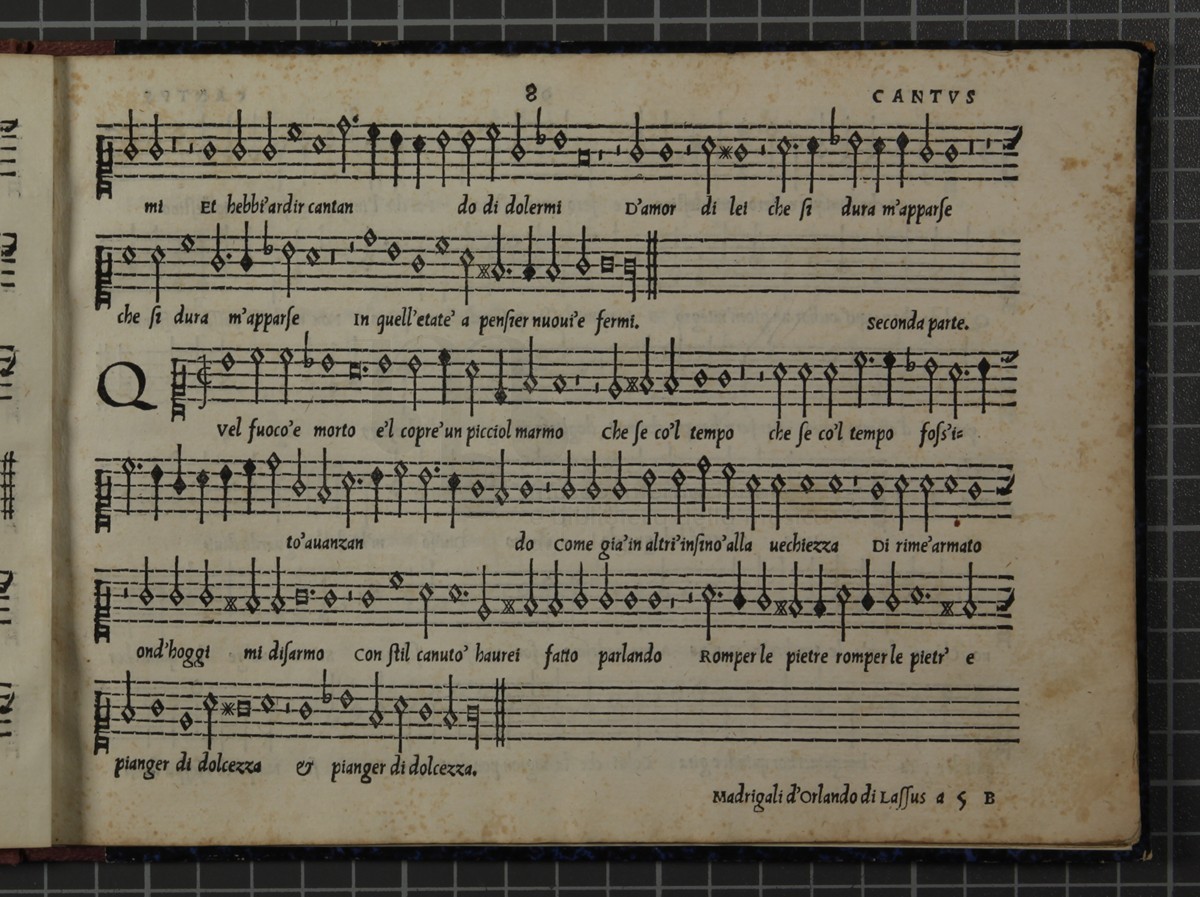 8 CANTVS
mi Et hebbi'ardir cantan do di dolermi D'amor di lei che ſi dura m'apparſe
che ſi dura m'apparſe In quell'etate' a penſier nuoui'e fermi. Seconda parte.
Q Vel fuoco'e morto e'l copre'un picciol marmo Che ſe co'l tempo che ſe co'l tempo foſs'i=
to'auanzan do Come gia'in altri'inſino'alla uechiezza Di rime'armato
ond'hoggi mi diſarmo Con ſtil canuto' haurei fatto parlando Romper le pietre romper le pietr' e
pianger di dolcezza & pianger di dolcezza.
Madrigali d'Orlando di Laſſus a 5 B